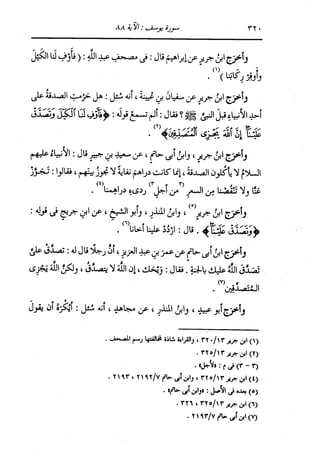 ٣٢٠ سورة يوسف : الآية ٨٨
وأخرَج ابنُ جريرٍ عن إبراهيمَ قال : فى مصحفِ عبدِ اللَّهِ : ( فأَوْفِ لنا الكَيْلَ
وأَوْقِرْ رِكابَنا )(١) .
وأخرَج ابنُ جريرٍ عن سفيانَ بنِ عُيينةَ ، أنه سُئل : هل حُرِّمتِ الصدقةُ على
أحدٍ من الأنبياءِ قبلَ النبيِّ ﷺ ؟ فقال : ألم تسمعْ قولَه : ﴿ فَأَوْفِ لَنَا ٱلْكَيْلَ وَتَصَدَّقْ
عَلَيْنَآ إِنَّ ٱللَّهَ يَجْزِى ٱلْمُتَصَدِّقِينَ ﴾(٢) .
وأخرَج ابنُ جريرٍ ، وابنُ أبى حاتمٍ ، عن سعيدِ بنِ جبيرٍ قال : الأنبياءُ عليهم
السلامُ لا يأكُلون الصدقةَ ، إنما كانت دراهمَ نُفايةً لا تجوزُ بينَهم ، فقالوا : تَجوَّزْ
عنَّا ولا تَنْقُصْنا من السعرِ (٣من أجلِ٣) ردىءِ دراهمِنا(٤) .
وأخرَج ابنُ جريرٍ(٥) ، وابنُ المنذرِ ، وأبو الشيخِ ، عن ابنِ جريجٍ فى قولِه :
﴿ وَتَصَدَّقْ عَلَيْنَآ ﴾ . قال : اردُدْ علينا أخانا(٦) .
وأخرَج ابنُ أبى حاتمٍ عن عمرَ بنِ عبدِ العزيزِ ، أن رجلًا قال له : تصدَّقْ علىَّ
تصدَّقَ اللَّهُ عليك بالجنةِ . فقال : ويْحَك ، إن اللَّهَ لا يتصدَّقُ ، ولكنَّ اللَّهَ يَجْزِى
المتصدِّقين(٧) .
وأخرَج أبو عبيدٍ ، وابنُ المنذرِ ، عن مجاهدٍ ، أنه سُئل : أيُكرَهُ أن يقولَ
(١) ابن جرير ١٣/ ٣٢٠ ، والقراءة شاذة لمخالفتها رسم المصحف .
(٢) ابن جرير ١٣/ ٣٢٥ .
(٣ - ٣) فى م : «لأجل» .
(٤) ابن جرير ١٣/ ٣٢٥ ، وابن أبى حاتم ٧/ ٢١٩٢ ، ٢١٩٣ .
(٥) بعده فى الأصل : «وابن أبى حاتم» .
(٦) ابن جرير ١٣/ ٣٢٥ ، ٣٢٦ .
(٧) ابن أبى حاتم ٧/ ٢١٩٣ .